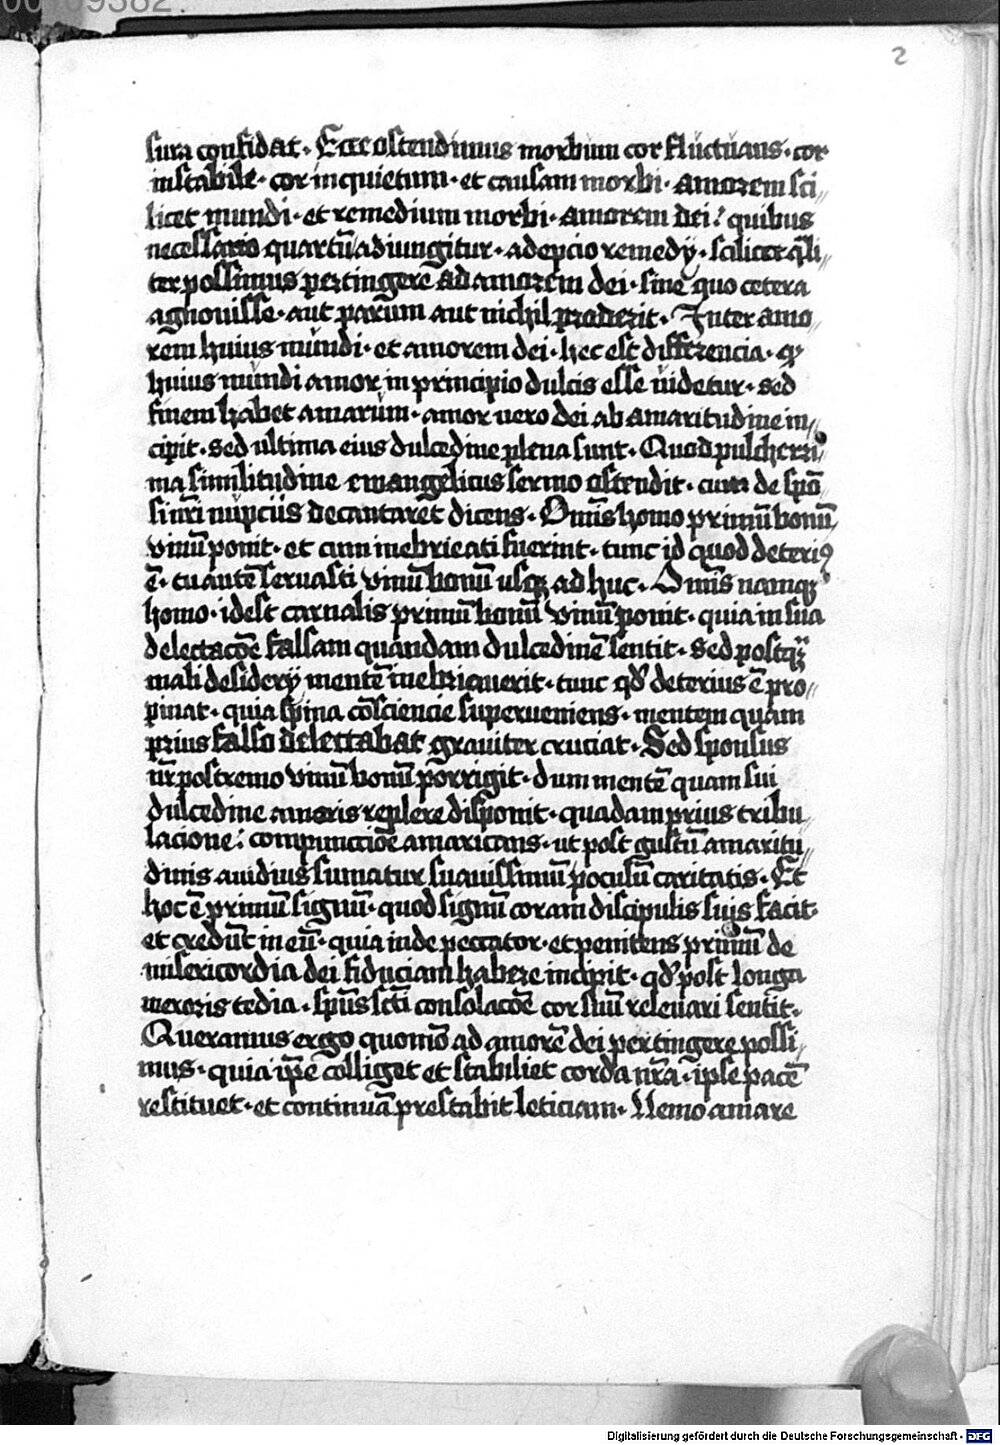 00109382
2
sura confidat · Ecce ostendimus morbum cor fluctuans · cor
instabile · cor inquietum · et causam morbi · amorem sci//
licet mundi · et remedium morbi · amorem dei : quibus
necessario quartū adiungitur · adepcio remedy · scilicet q̄li//
ter possimus pertingere ad amorem dei · sine quo cetera
agnouisse · aut parum aut nichil proderit · Inter amo//
rem huius mundi · et amorem dei · hec est differencia · qꝫ
huius mundi amor in principio dulcis esse uidetur · sed
finem habet amarum · amor uero dei ab amaritudine in//
cipit · sed ultima eius dulcedine plena sunt · Quod pulcherri//
ma similitudine ewangelicus sermo ostendit · cum de spō//
si nr̄i nupciis decantaret dicens · Om̄is homo primū bonū
vinū ponit · et cum inebrieati fuerint · tunc id quod deteriꝰ
ē · tu autē seruasti vinū bonū usqꝫ ad huc · Om̄is namqꝫ
homo · idest carnalis primū bonū vinū ponit · quia in sua
delectacōe falsam quandam dulcedinē sentit · sed postqꝫ
mali desidery mentē inebriauerit · tunc qđ deterius ē pro//
pinat · quia spina cōsciencie superueniens · mentem quam
prius falso delectabat grauiter cruciat · Sed sponsus
nr̄ postremo vinū bonū porrigit · dum mentē quam sui
dulcedine amoris replere disponit · quadam prius tribu//
lacione : compunctiōe amaricans · ut post gustū amaritu//
dinis auidius sumatur suauissimū poculū caritatis · Et
hoc ē primū signū · quod signū coram discipulis suis facit ·
et credūt in eū · quia inde peccator · et penitens primū de
misericordia dei fiduciam habere incipit · qđ post longa
meroris tedia · sp̄us sc̄ti consolacōe cor suū releuari sentit ·
Queramus ergo quomō ad amorē dei pertingere possi//
mus · quia ip̄e colliget et stabiliet corda nr̄a · ipse pacē
restituet · et continuā prestabit leticiam · Nemo amare
Digitalisierung gefördert durch die Deutsche Forschungsgemeinschaft - DFG